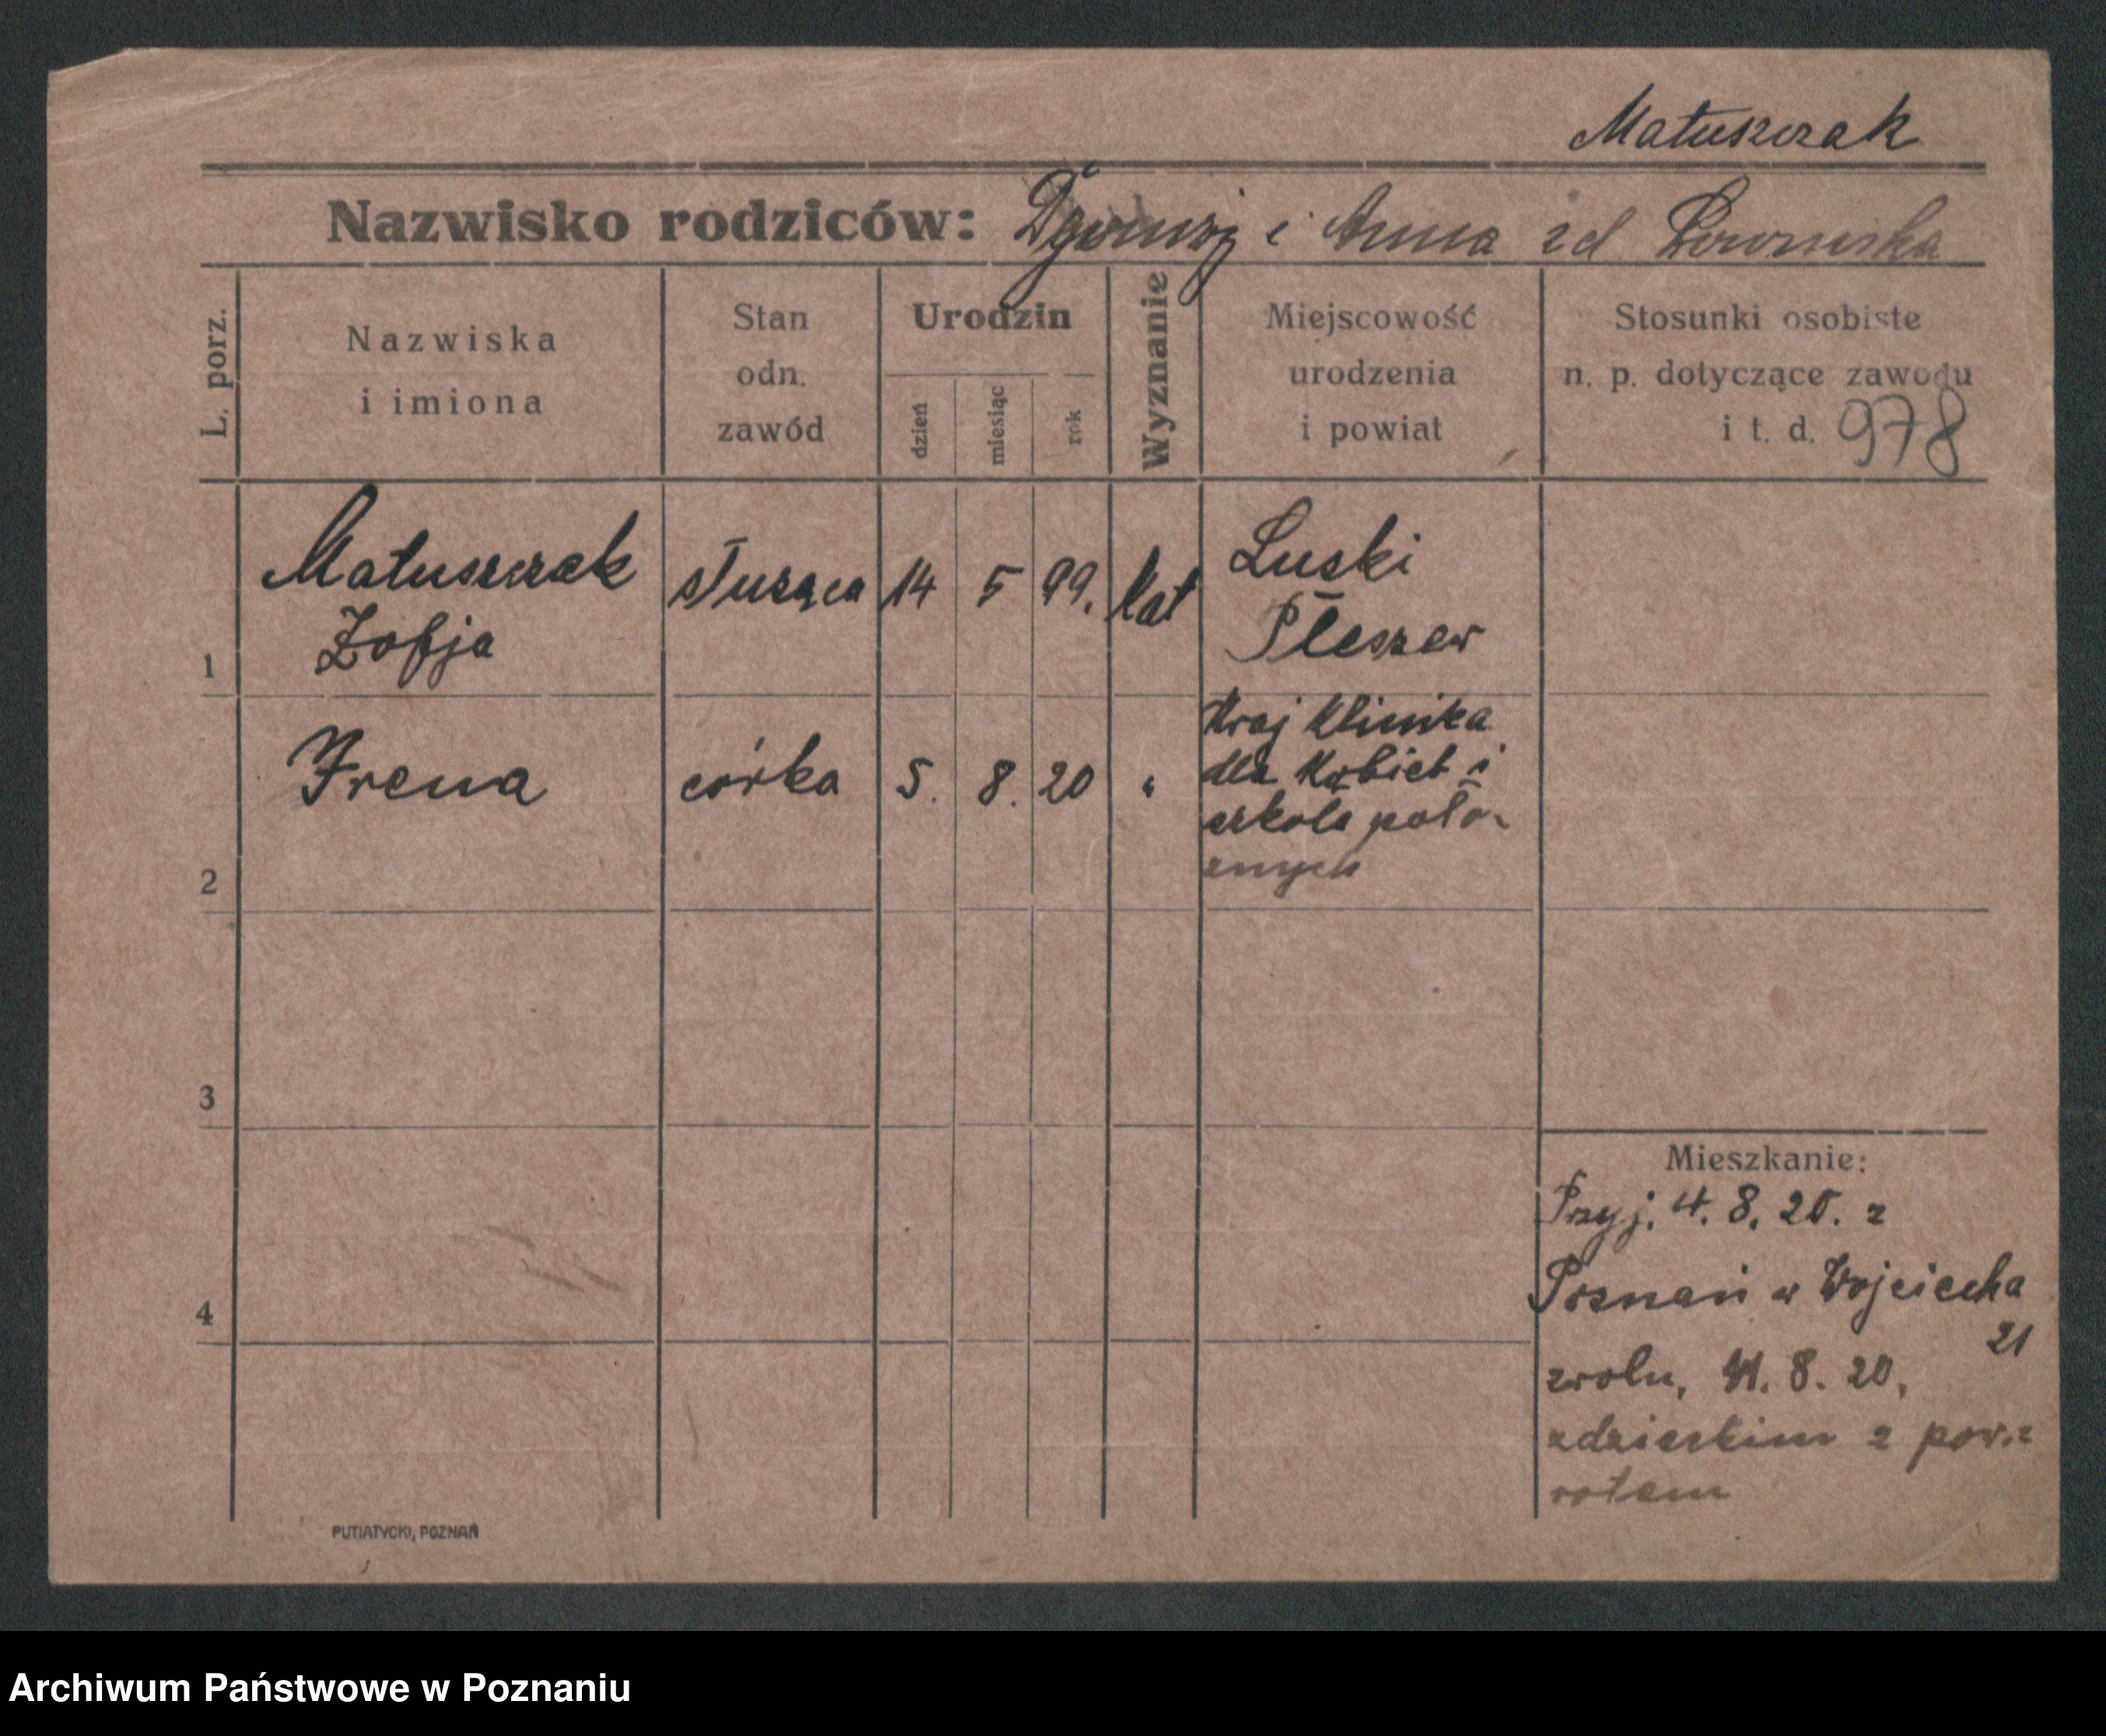 Matuszczak
Nazwisko rodziców: i Anna zd
L. porz.
Nazwiska
i imiona
Stan
odn.
zawód
Urodzin
dzień
miesiąc
rok
Wyznanie
Miejscowość
urodzenia
i powiat
Stosunki osobiste
n. p. dotyczące zawodu
i t. d. 978
1
Matuszczak
Zofja
służąca
14
5
99.
kat
Luski
Pleszew
2
Irena
córka
5.
8.
20
"
Kraj Klinika
dla Kobiet i
szkoła poło-
znych
3
4
Mieszkanie:
Przyj. 4. 8. 20. z
Poznań w Wojciecha
21
zwoln, 8. 20,
zdzieckim z pow:
rotem
PUTIATYCKI, POZNAŃ
Archiwum Państwowe w Poznaniu